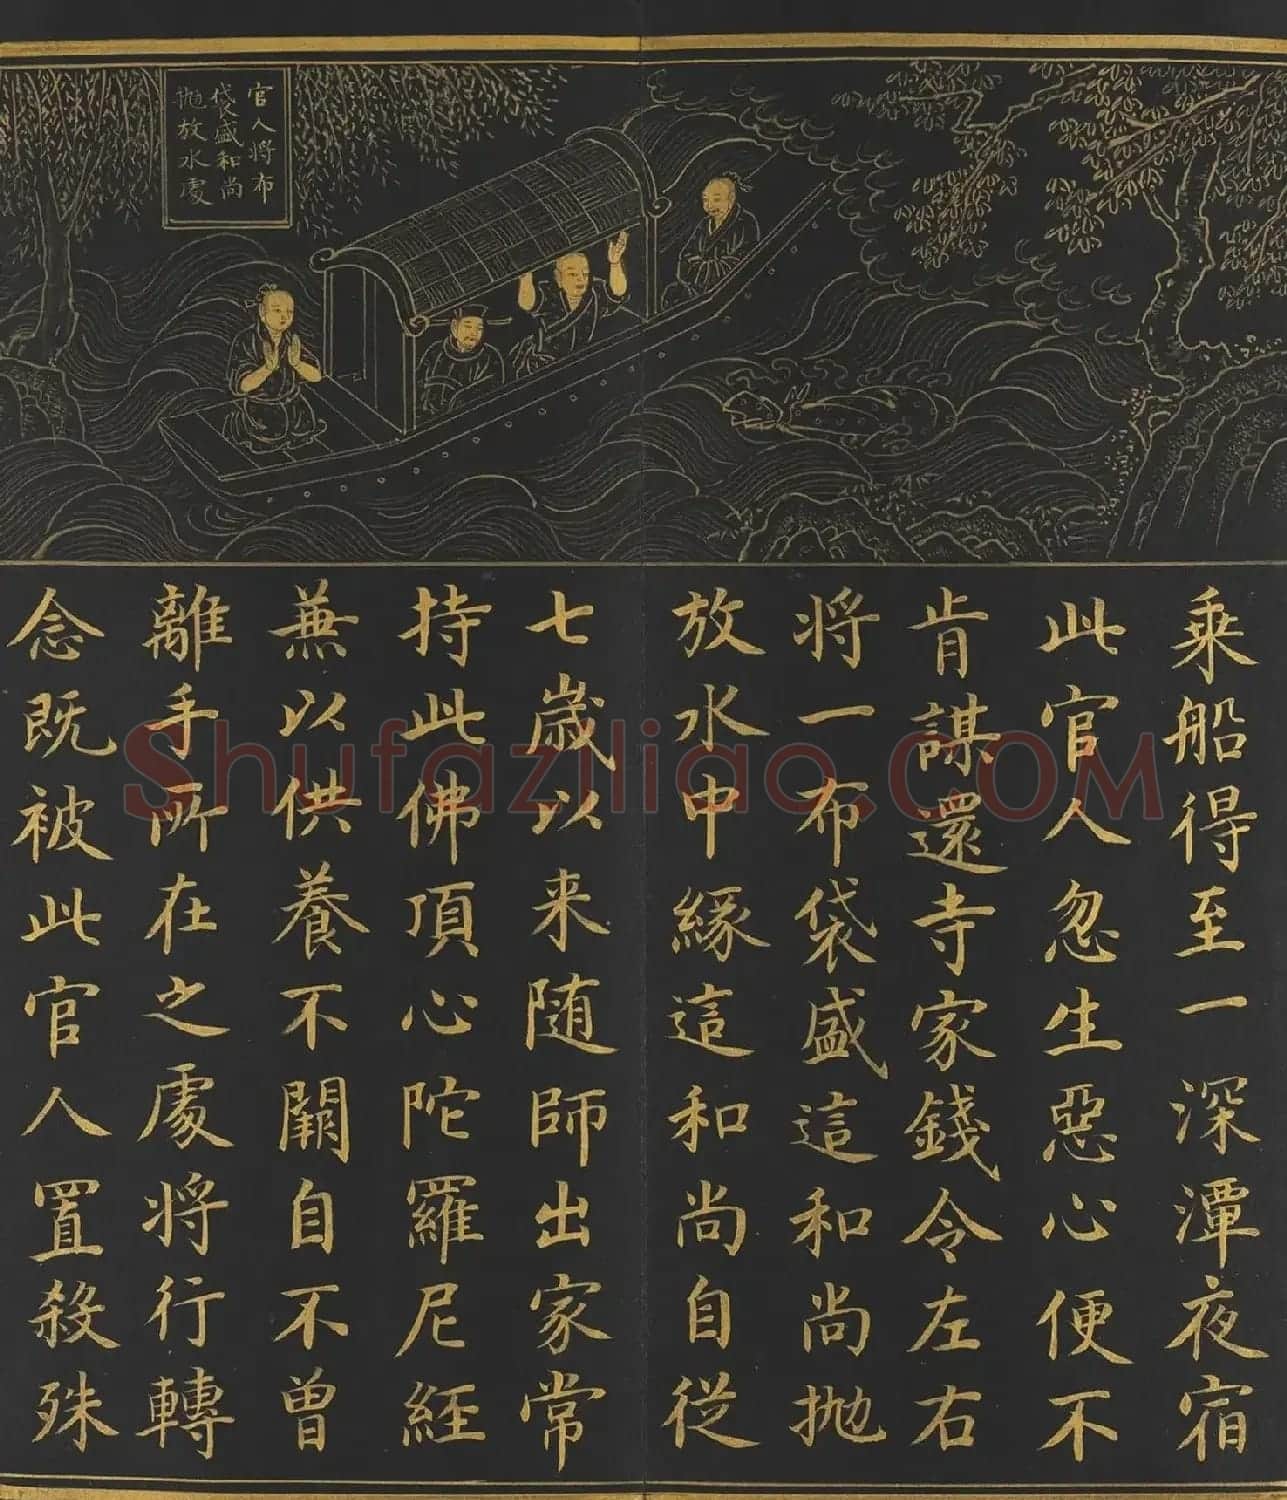 官人将布
袋盛和尚
抛放水處
乗船得至一深潭夜宿
此官人忽生惡心便不
肯謀還寺家錢令左右
将一布袋盛這和尚抛
放水中縁這和尚自從
七歲以来随師出家常
持此佛頂心陀羅尼經
兼以供養不闕自不曽
離手所在之處将行轉
念既被此官人置殺殊
Shufaziliao.COM